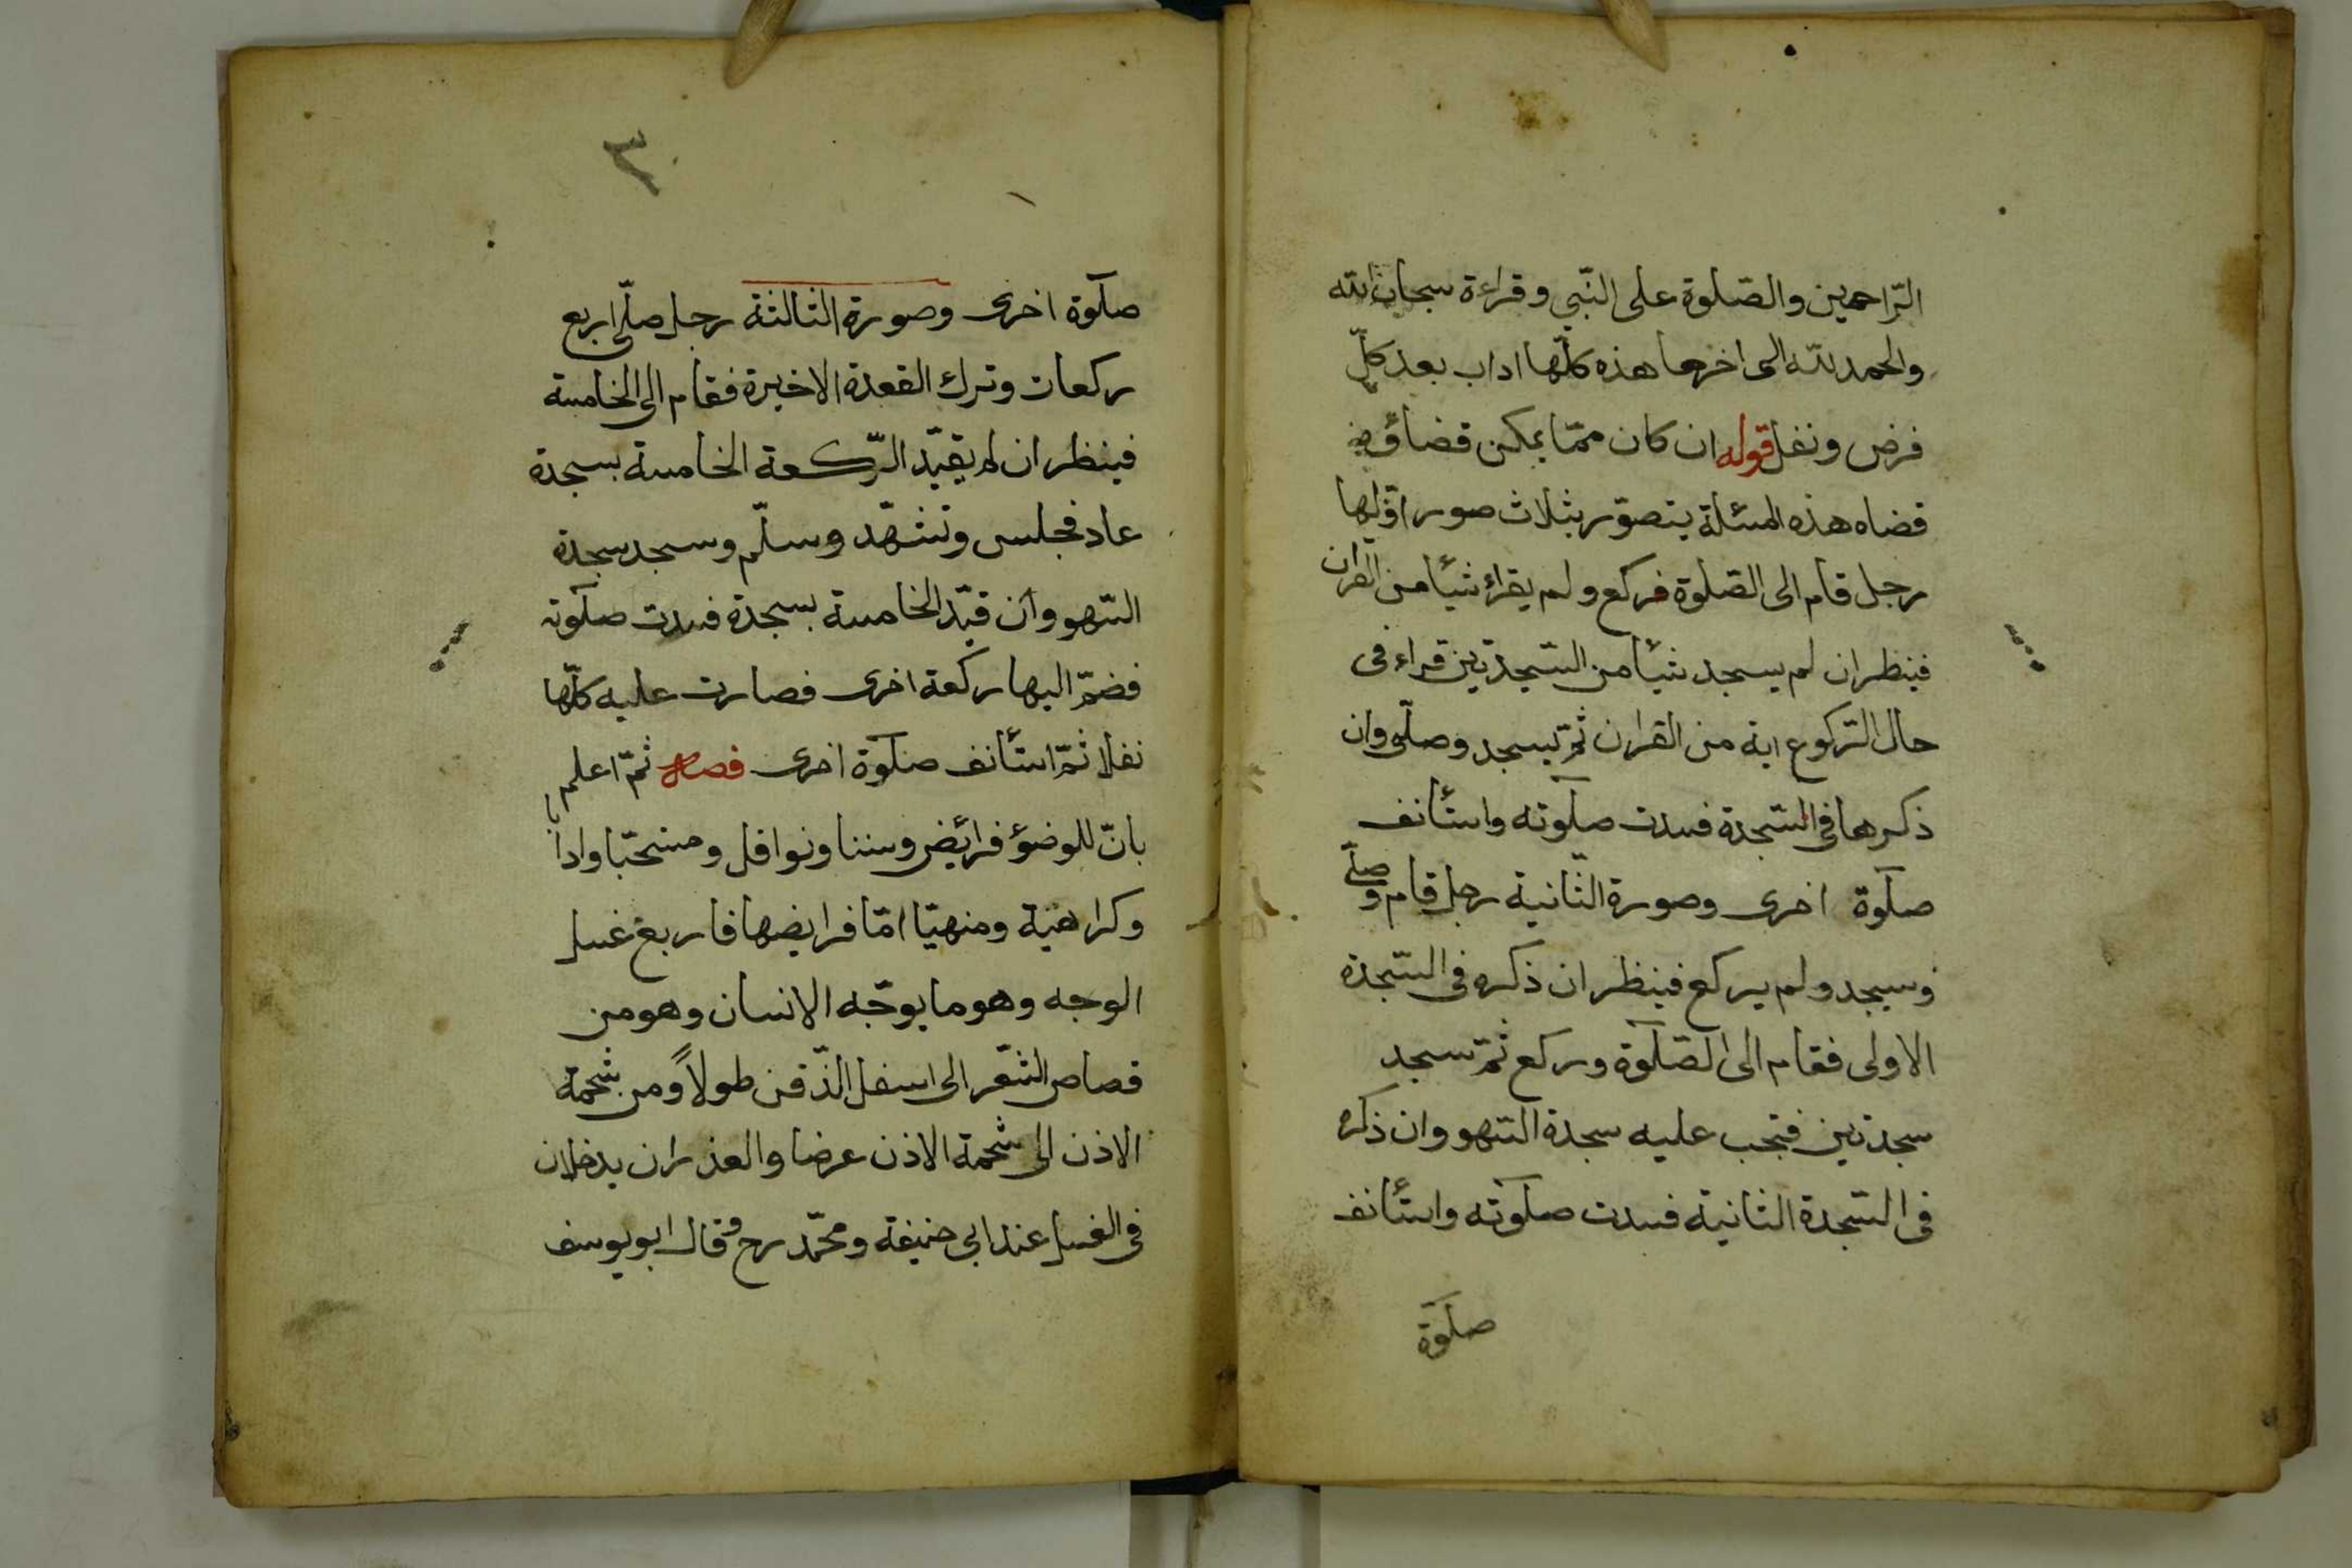 الرّاحمين والصّلوة على النّبي وقراءة سبحان الله
والحمد لله الى اخرها هذه كلّها اداب بعد كلّ
فرض ونفل قوله ان كان ممّا يمكن قضاؤه
قضاه هذه المسئلة يتصوّر بثلاث صور اوّلها
رجل قام الى الصّلوة فركع ولم يقرائ شيأ من القران
فينظر ان لم يسجد شيأ من السّجدتين قراء فى
حال الرّكوع اية من القران ثمّ يسجد وصلّى وان
ذكرها فى السّجدة فسدت صلوته واستأنف
صلوة اخرى وصورة الثّانية رجل قام وصلّى
وسيجد ولم يركع فينظر ان ذكره فى السّجدة
الاولى فقام الى الصّلوة وركع ثمّ سجد
سجدتين فتجب عليه سجدة السّهو وان ذكره
فى السّجدة الثانية فسدت صلوته واستأنف
صلوة
٣
صلوة اخرى وصورة الثالثة رجل صلّى اربع
ركعات وترك القعدة الاخيرة فقام الى الخامسة
فينظر ان لم يقيّد الرّكعة الخامسة بسجدة
عاد فجلس وتشهّد وسلّم وسجد سجدة
السّهو وان قيّد الخامسة بسجدة فسدت صلوته
فضمّ اليها ركعة اخرى فصارت عليه كلّها
نفلا ثمّ استأنف صلوة اخرى فصل ثمّ اعلم
بانّ للوضؤ فرائض وسننا ونوافل ومستحبّا وادابا
وكراهية ومنهيّا امّا فرايضها فاربع غسل
الوجه وهو ما يوجّه الانسان وهو من
قصاص الشّعر الى اسفل الذّقن طولاً ومن شحمة
الاذن الى شحمة الاذن عرضا والعذران يدخلان
فى الغسل عند ابى حنيفة ومحمّد رح وقال ابو يوسف